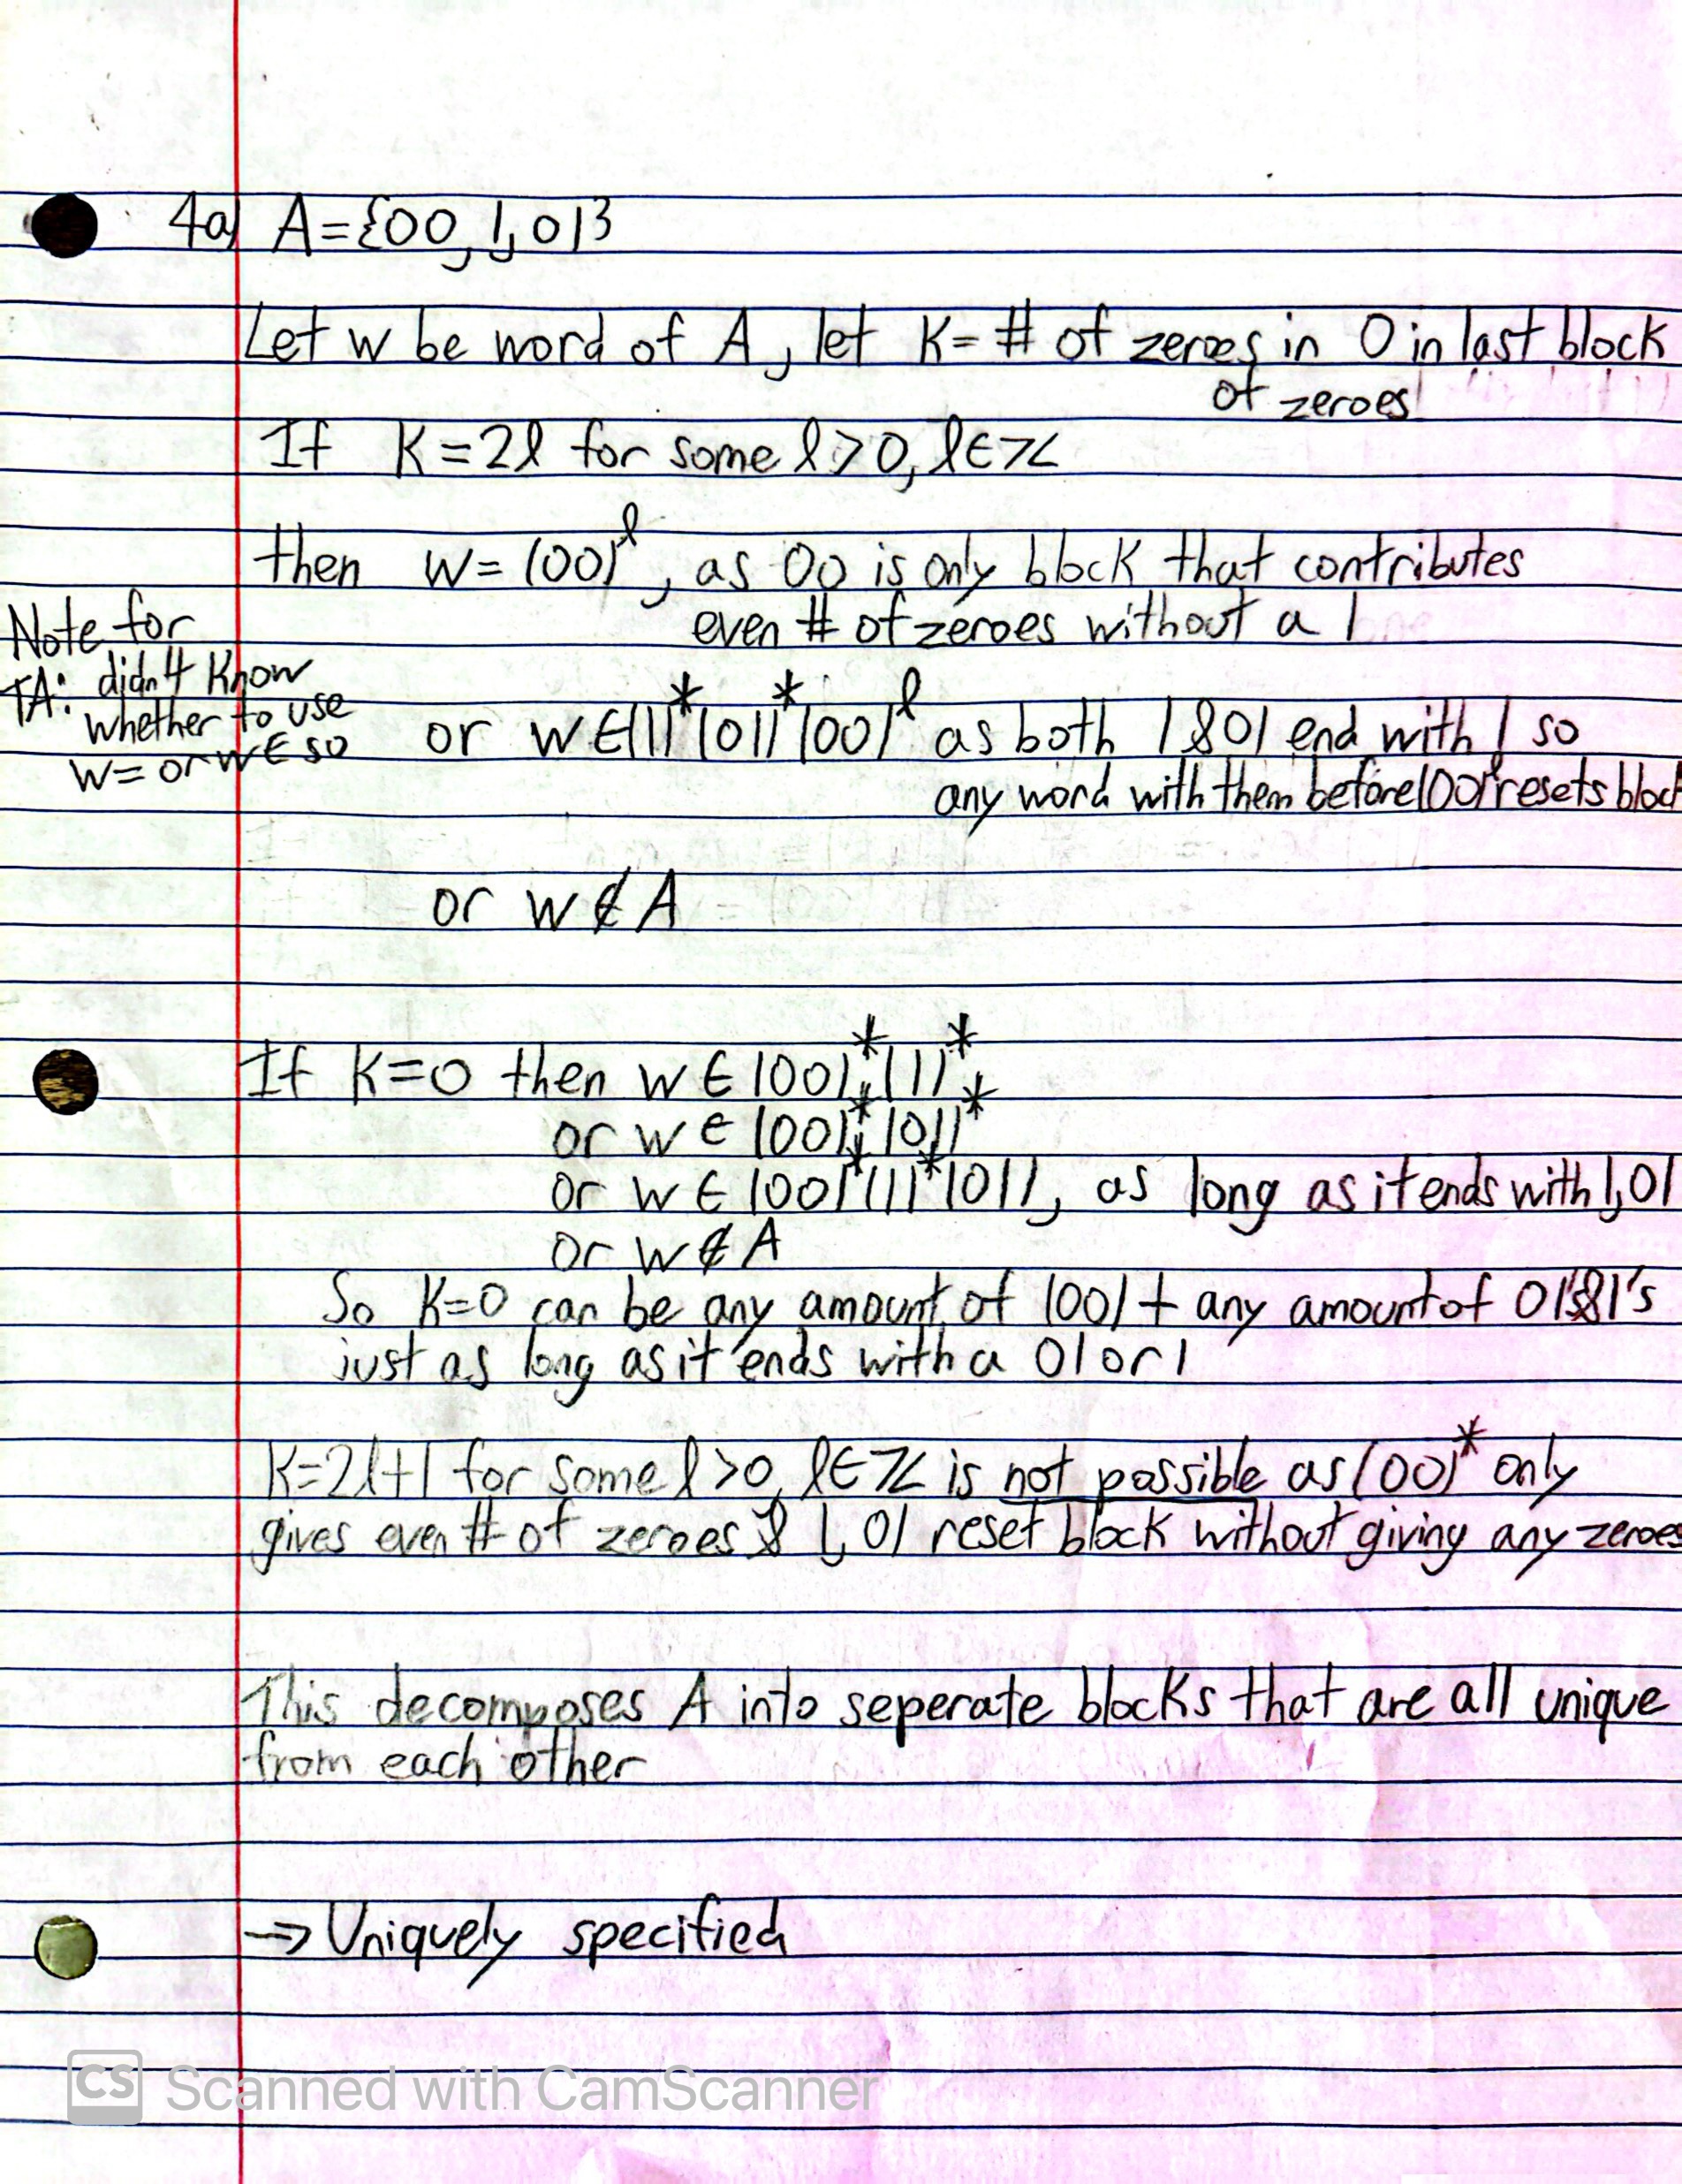 4a) A={00, 1, 01}
Let w be word of A, let K= # of zeroes in 0 in last block
of zeroes
If K=2l for some l>0, l∈ℤ
then w=(00)^l, as 00 is only block that contributes
even # of zeroes without a 1
Note for
TA: didn't know
whether to use
w= or w∈ so
or w∈(1)*(01)*(00)^l as both 1 & 01 end with 1 so
any word with them before (00)^l resets block
or w∉A
If K=0 then w∈(00)*(1)*
or w∈(00)*(01)*
or w∈(00)*(1)*(01), as long as it ends with 1,01
or w∉A
So K=0 can be any amount of (00)+ any amount of 01's&1's
just as long as it ends with a 01 or 1
K=2l+1 for some l>0, l∈ℤ is not possible as (00)* only
gives even # of zeroes & 1, 01 reset block without giving any zeroes
This decomposes A into seperate blocks that are all unique
from each other
→ Uniquely specified
CS Scanned with CamScanner